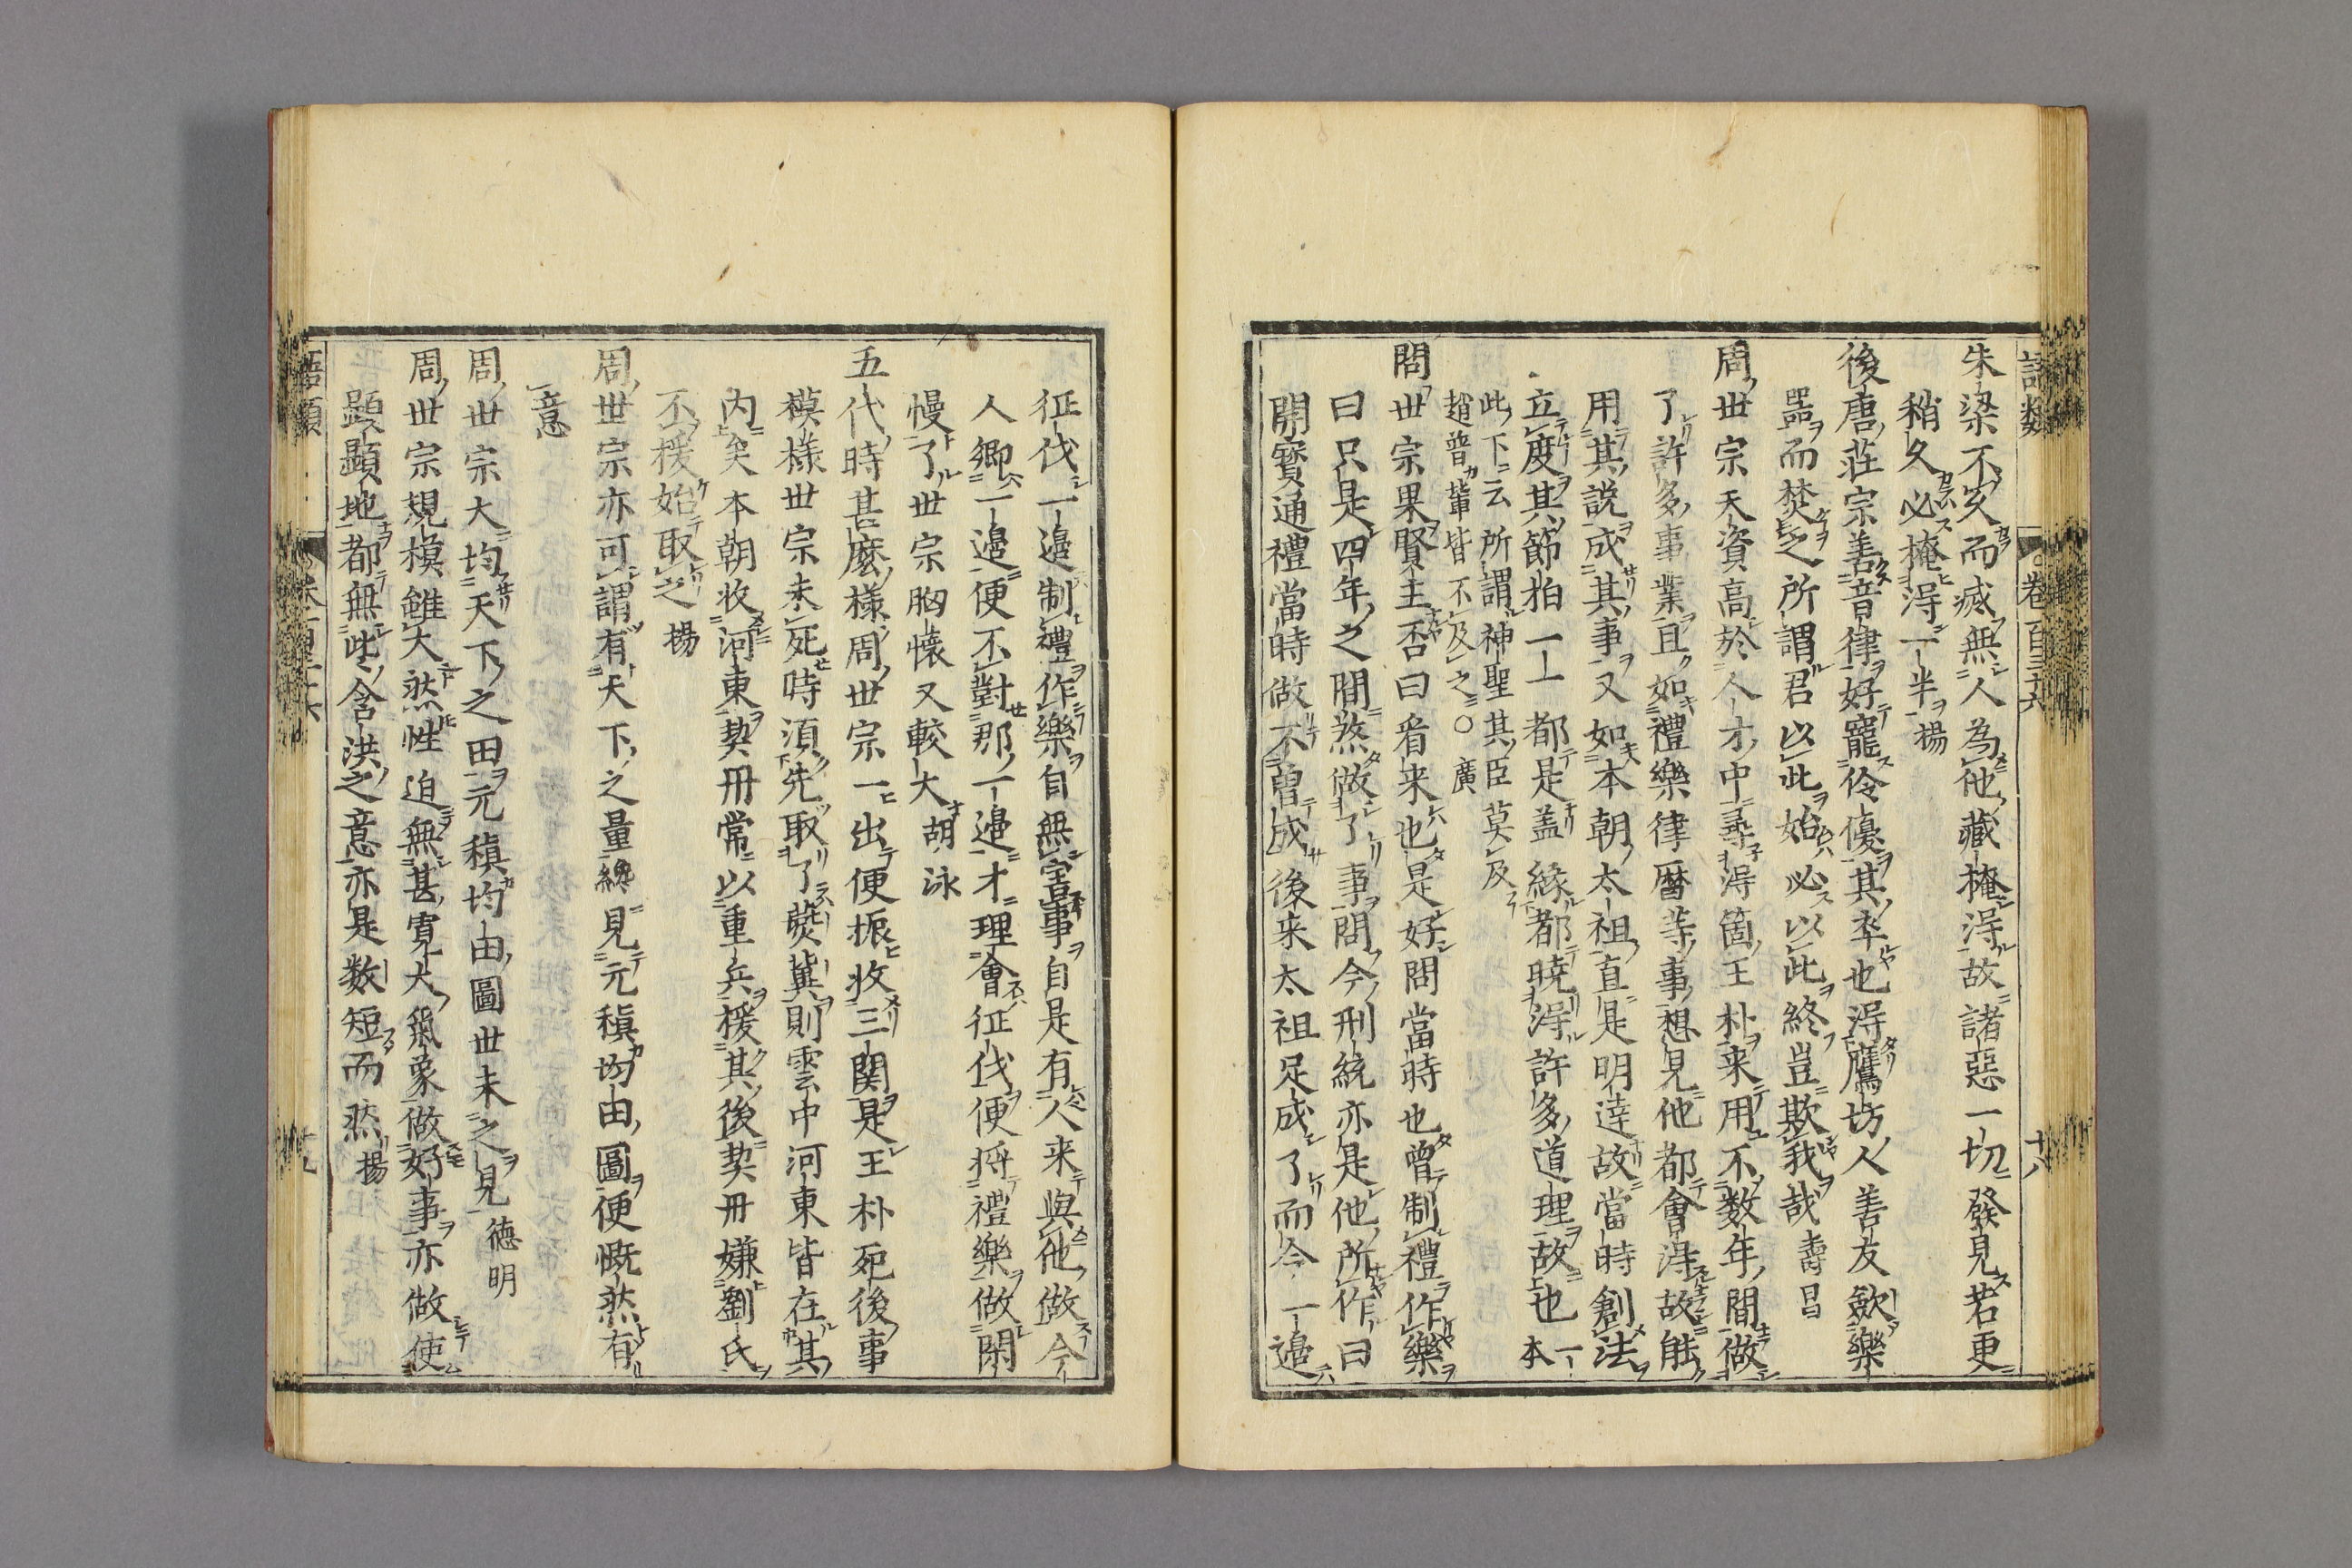 語類 卷百三十六 十八
朱梁不久而滅無人為他藏掩得故諸惡一切發見若更
稍久必掩得一半 揚
後唐莊宗善音律好寵伶優其卒也得鷹坊人善友斂樂
器而焚之所謂君以此始必以此終豈欺我哉 壽昌
周世宗天資高於人才中尋得箇王朴来用不数年間做
了許多事業且如禮樂律暦等事想見他都會得故能
用其説成其事又如本朝太祖直是明達故當時創法
立度其節拍一一都是盖緣都曉得許多道理故也 一本
此下云所謂神聖其臣莫及
趙普輩皆不及之○廣
問世宗果賢主否曰看来也是好問當時也曾制禮作樂
曰只是四年之間煞做了事問今刑統亦是他所作曰
開寳通禮當時做不曽成後来太祖足成了而今一邉
征伐一邉制禮作樂自無害事自是有人来與他做今
人卿一邉便不對那一邉才理會征伐便将禮樂做閑
慢了世宗胸懐又較大 胡泳
五代時甚麽様周世宗一出便振收三関是王朴死後事
模様世宗未死時湏先取了燕冀則雲中河東皆在其
内矣本朝收河東契丹常以重兵援其後契丹嫌劉氏
不援始取之 揚
周世宗亦可謂有天下之量纔見元稹均田圖便慨然有
意
周世宗大均天下之田元稹均田圖世未之見 徳明
周世宗規模雖大然性迫無甚寛大氣象做好事亦做使
顕顕地都無此含洪之意亦是数短而然 揚
語類 十九